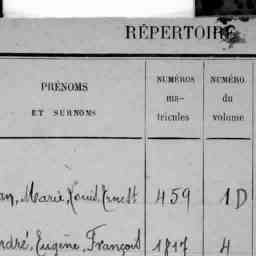 RÉPERTOIRE
PRÉNOMS
ET SURNOMS
NUMÉROS
ma-
tricules
NUMÉRO
du
volume
an, Marie, Louis, Ernest 459 1D
ndré, Eugène, François 1817 4